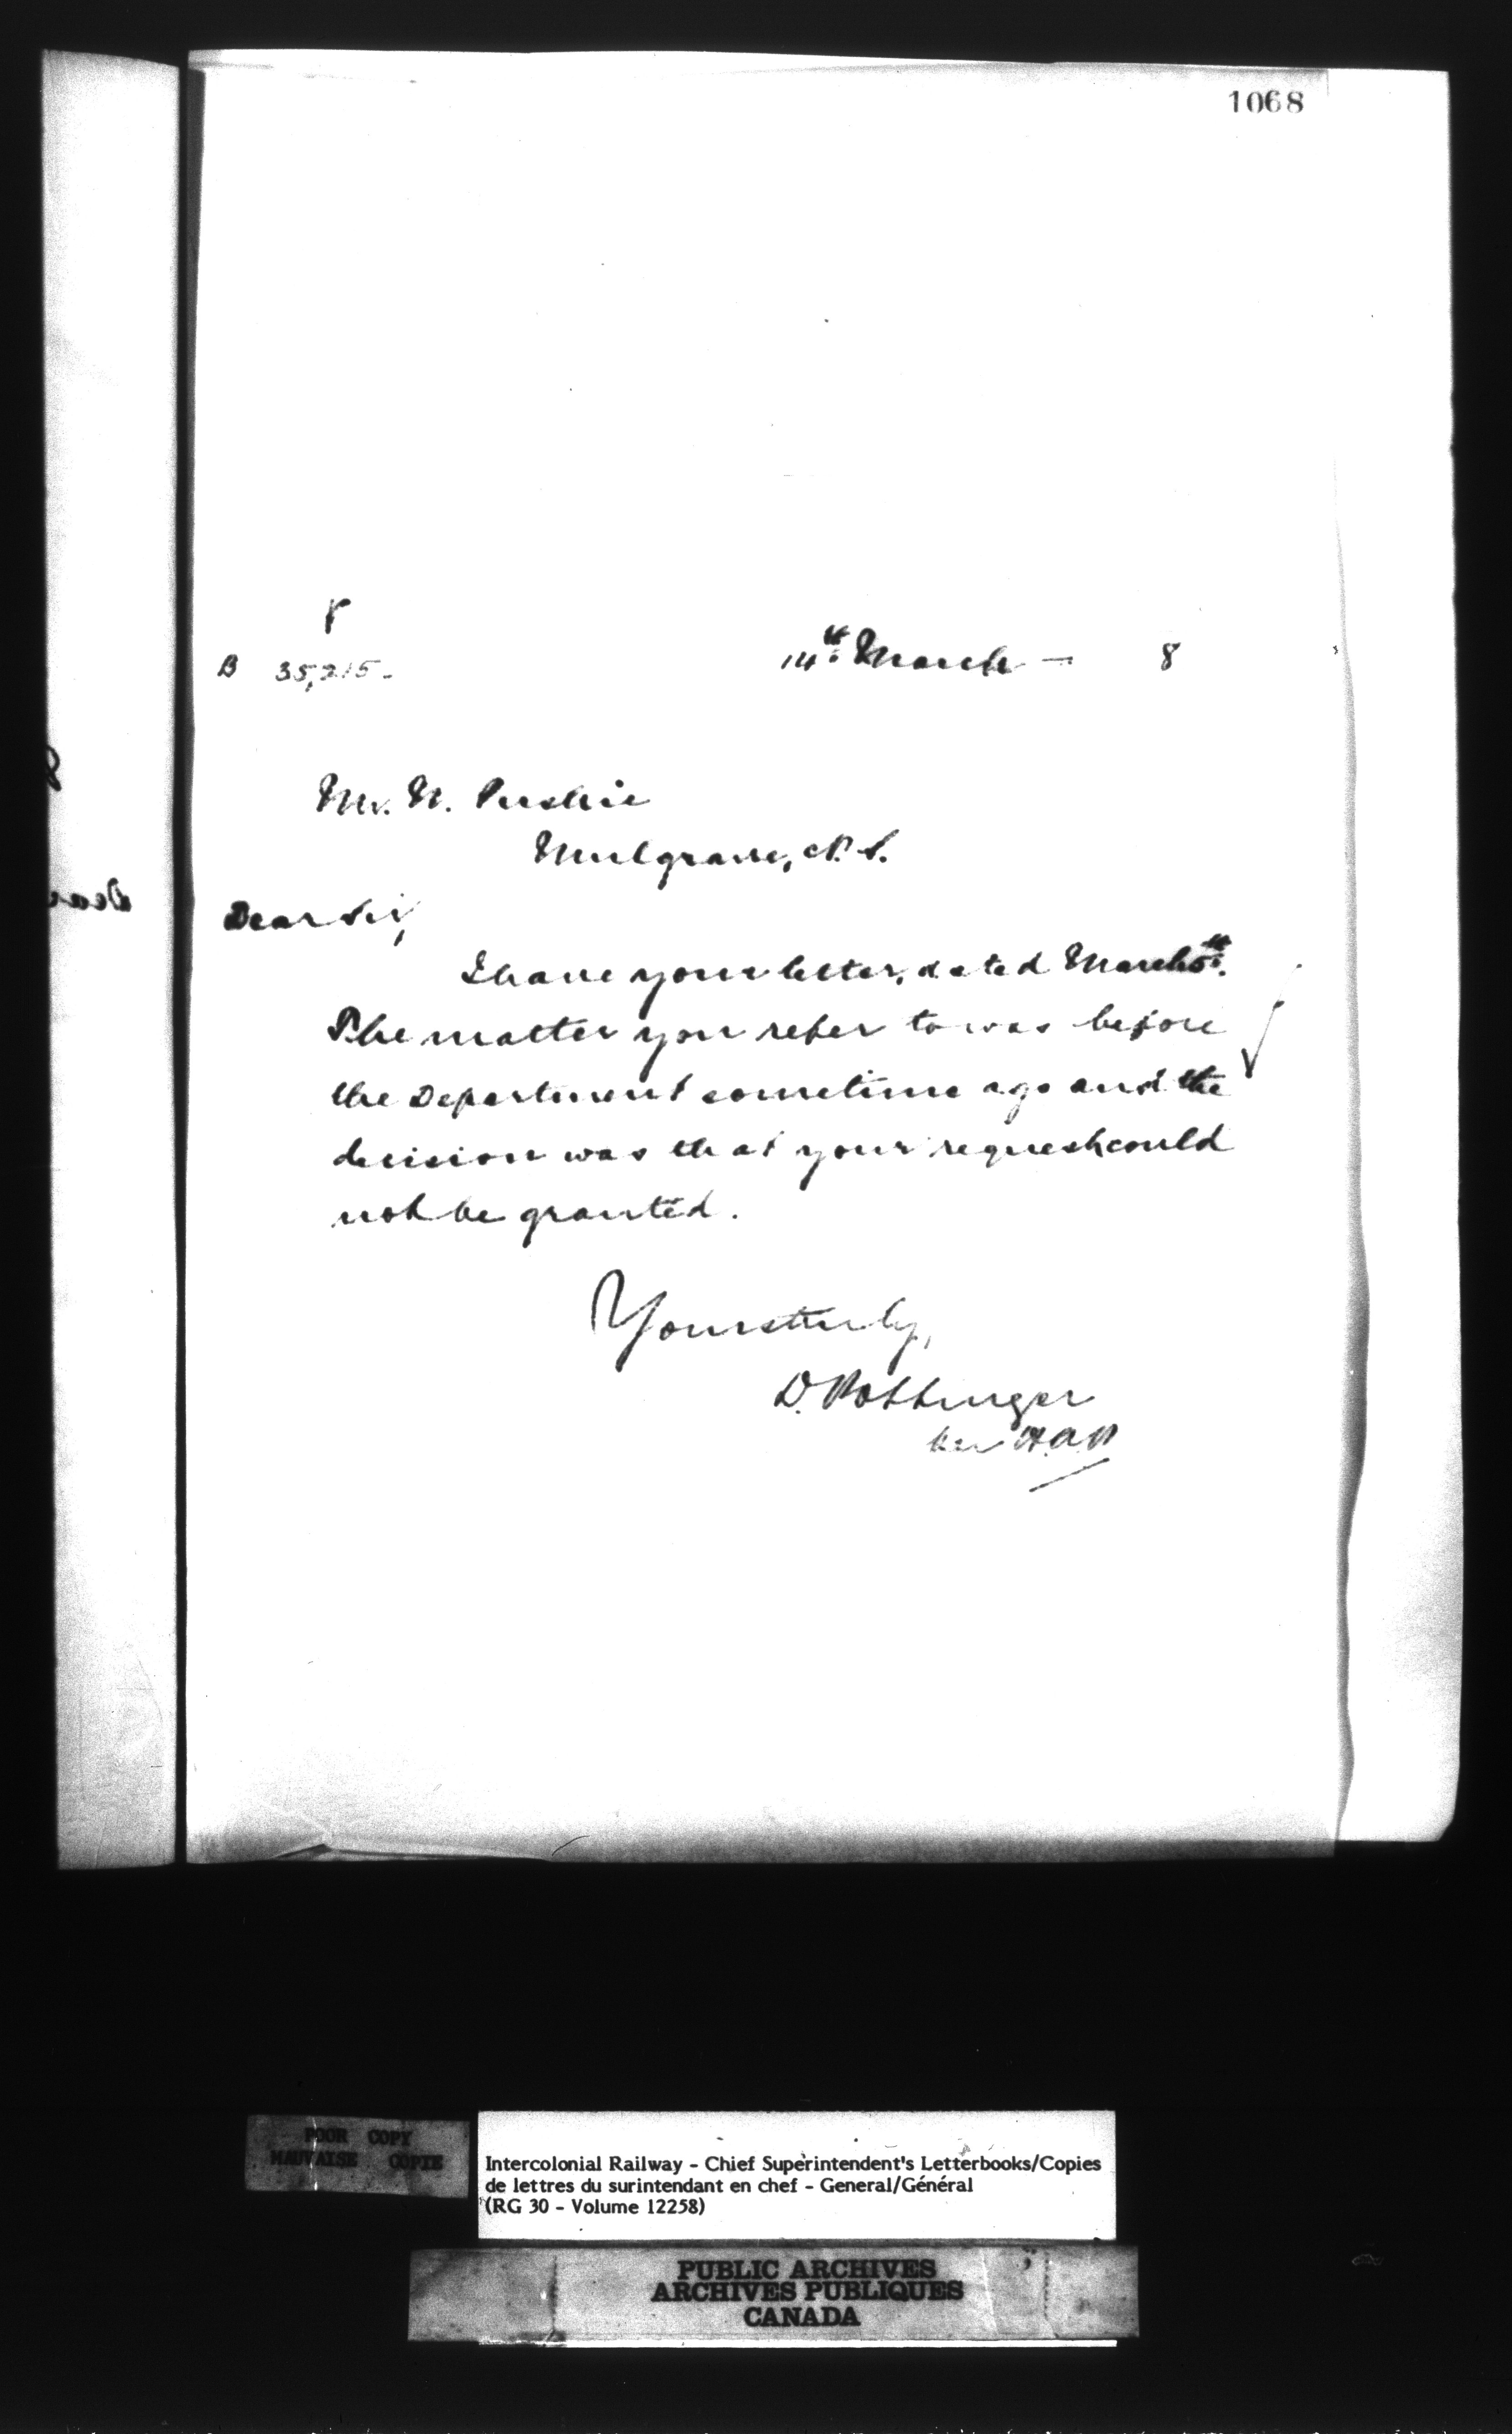 1068
B 35,215-
14th March - 8
Mr. N. Purslie
Mulgrave, N.S.
Dear Sir,
I have your letter, dated March 5th.
The matter you refer to was before
the Department sometime ago and the
decision was that your request could
not be granted.
Yours truly,
D. Pottinger
per
POOR COPY
MAUVAISE COPIE
Intercolonial Railway - Chief Superintendent's Letterbooks/Copies
de lettres du surintendant en chef - General/Général
(RG 30 - Volume 12258)
PUBLIC ARCHIVES
ARCHIVES PUBLIQUES
CANADA